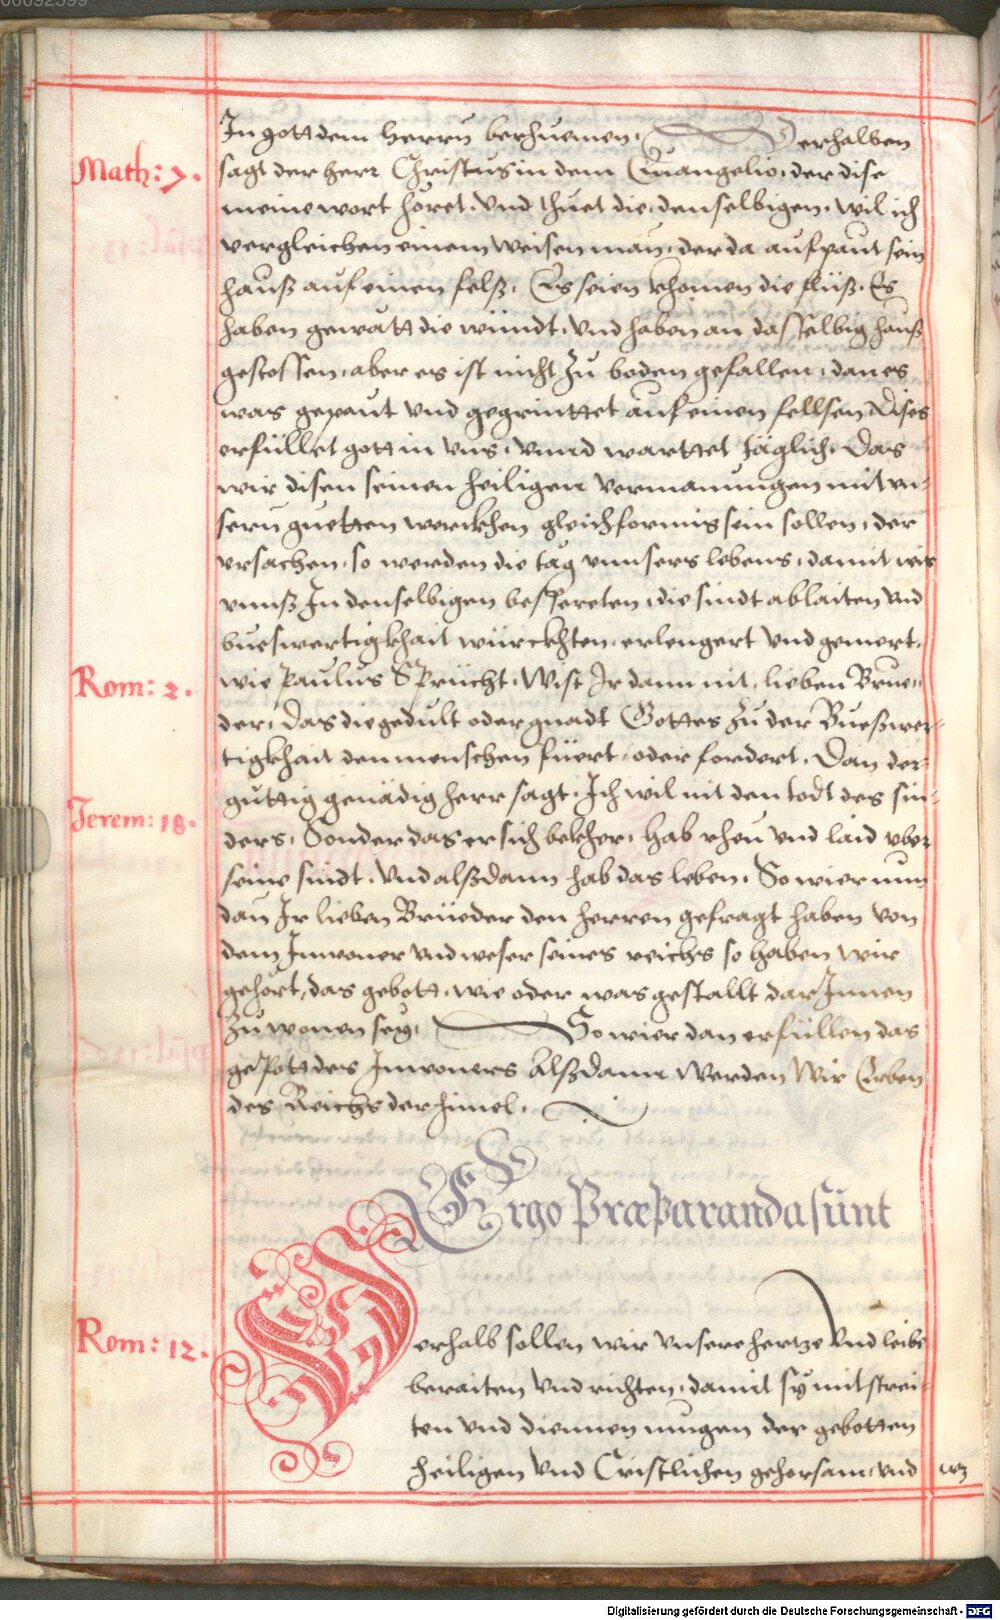 00092599
In gott dem herrn berhuemen. Derhalben
Math: 7. sagt der herr Christus in dem Euangelio, der dise
meine wort höret. Vnd thuet die, denselbigen, wil ich
vergleichen einem weisen man, der da aufpaut sein
hauß auf einen felß. Es seien khomen die flüß. Es
haben gewätt die windt, vnd haben an dasselbig hauß
gestossen, aber es ist nicht zu boden gefallen, dan es
was gepaut vnd gegrinttet auf einen fellsen, Dises
erfüllet gott in vns, vnnd warttet täglich. Das
wir disen seinen heiligen vermanungen mit vn-
sern guetten werckhen gleichformig sein sollen, der
vrsachen, so werden die tag vnnsers lebens, damit wir
vnnß In denselbigen bessereten, die sindt ablaiten vnd
bueswertigkhait würckhten, erlengert vnd gemert.
Rom: 2. wie Paulus Sprücht. Wist Ir dann nit, lieben Brue-
der, das die gedult oder gnadt Gottes zu der Bueßwer-
tigkhait den menschen füert, oder fordert. Dan der
Jerem: 18. güttig genädig herr sagt. Ich wil nit den todt des sin-
ders, Sonder das er sich bekher, hab rheu vnd laid vber
seine sindt. Vnd alßdann hab das leben. So wier nun
dan Ir lieben Brüeder den herren gefragt haben von
dem Inwoner vnd weser seines reichs so haben wir
gehört, das gebott, wie oder was gestallt dar Innen
zu wonen sey. So wier dan erfüllen das
gePott des Inwoners Alßdann werden Wir Erben
des Reichs der himel.
Ergo Præparanda sunt
Rom: 12. Derhalb sollen wir vnsere hertze vnd leibe
beraiten vnd richten, damit sy mit strei-
ten vnd diennen mugen der gebotten
heiligen vnd Cristlichen gehorsam, vnd
Digitalisierung gefördert durch die Deutsche Forschungsgemeinschaft - DFG